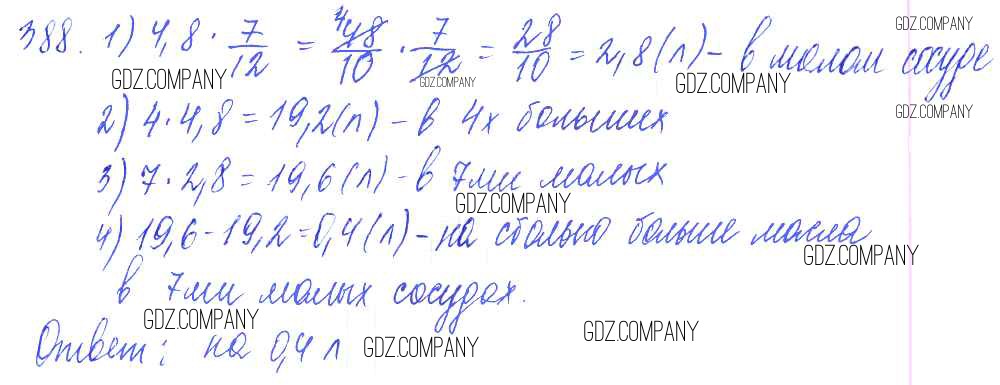 388. 1) 4,8 · 7/12 = 48/10 · 7/12 = 28/10 = 2,8 (л) – в малом сосуде
2) 4 · 4,8 = 19,2 (л) – в 4х больших
3) 7 · 2,8 = 19,6 (л) – в 7ми малых
4) 19,6 – 19,2 = 0,4 (л) – на столько больше масла
в 7ми малых сосудах.
Ответ: на 0,4 л
GDZ.COMPANY
GDZ.COMPANY
GDZ.COMPANY
GDZ.COMPANY
GDZ.COMPANY
GDZ.COMPANY
GDZ.COMPANY
GDZ.COMPANY
GDZ.COMPANY
GDZ.COMPANY